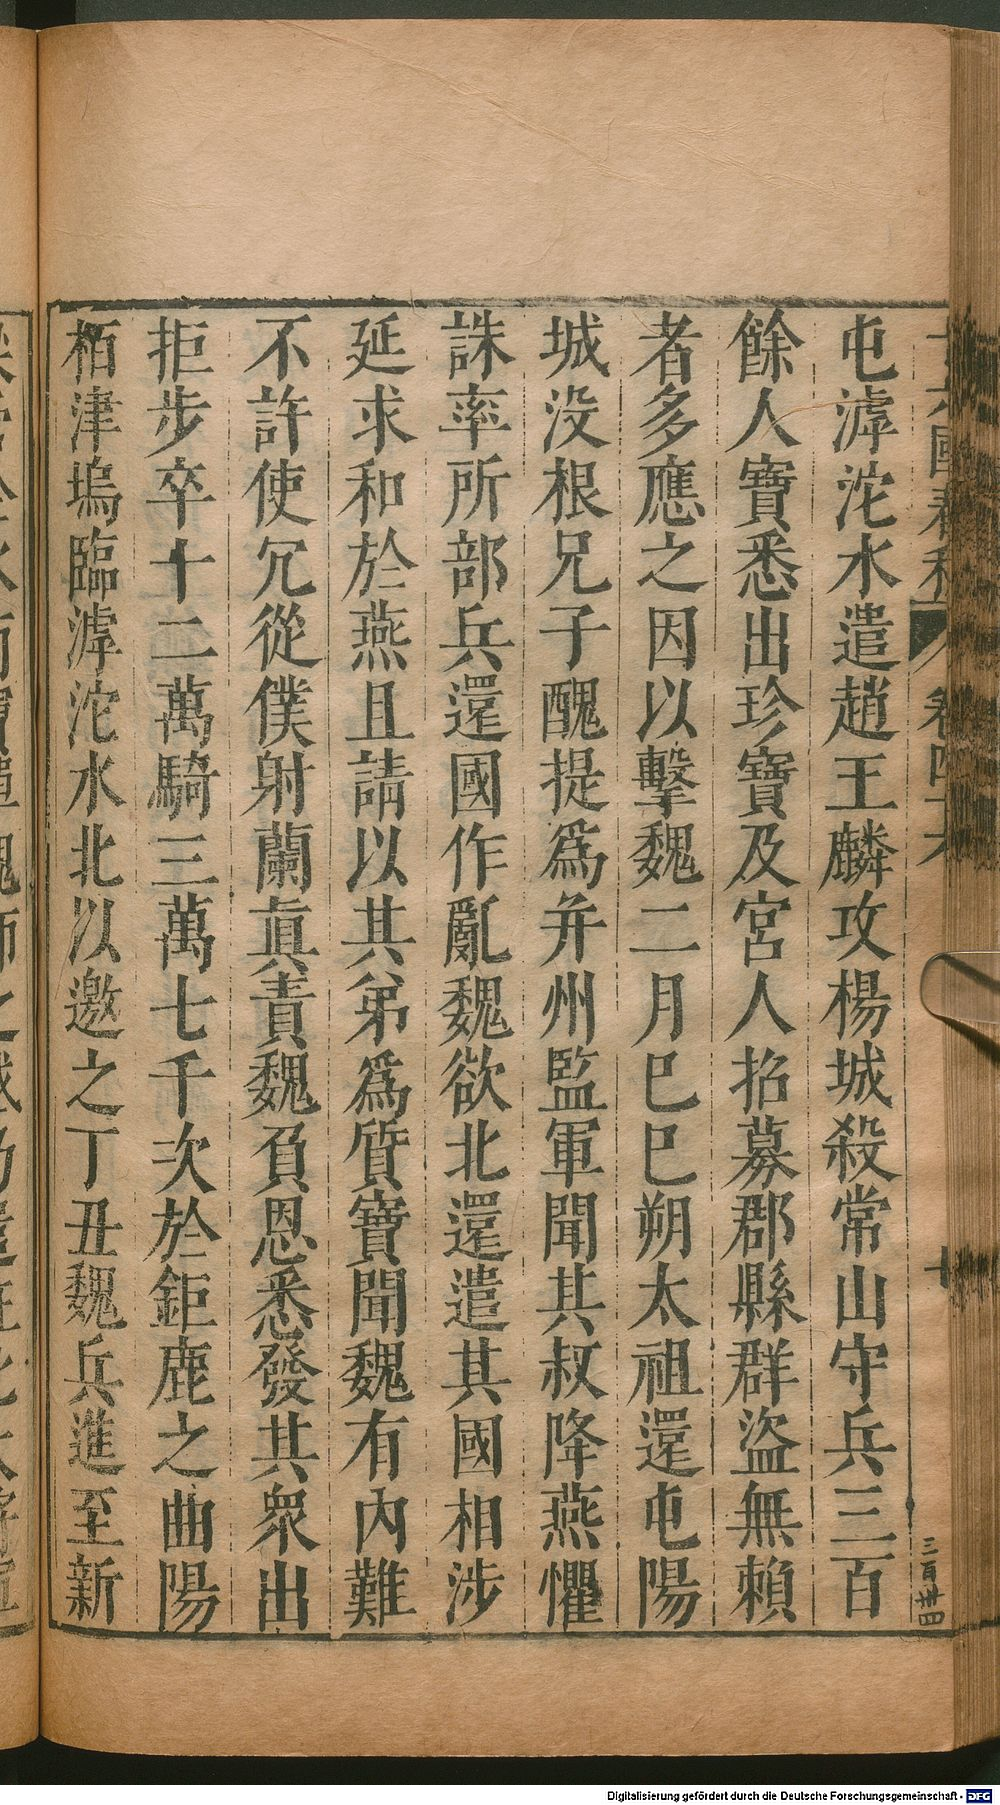 屯滹沱水遣趙王麟攻楊城殺常山守兵三百
餘人寶悉出珍寶及宮人招募郡縣群盜無賴
者多應之因以擊魏二月巳巳朔太祖還屯陽
城没根兄子醜提爲并州監軍聞其叔降燕懼
誅率所部兵還國作亂魏欲北還遣其國相涉
延求和於燕且請以其弟爲質寶聞魏有内難
不許使冗從僕射蘭眞責魏負恩悉發其衆出
拒步卒十二萬騎三萬七千次於鉅鹿之曲陽
栢津塢臨滹沱水北以邀之丁丑魏兵進至新
三百卌四
Digitalisierung gefördert durch die Deutsche Forschungsgemeinschaft - DFG